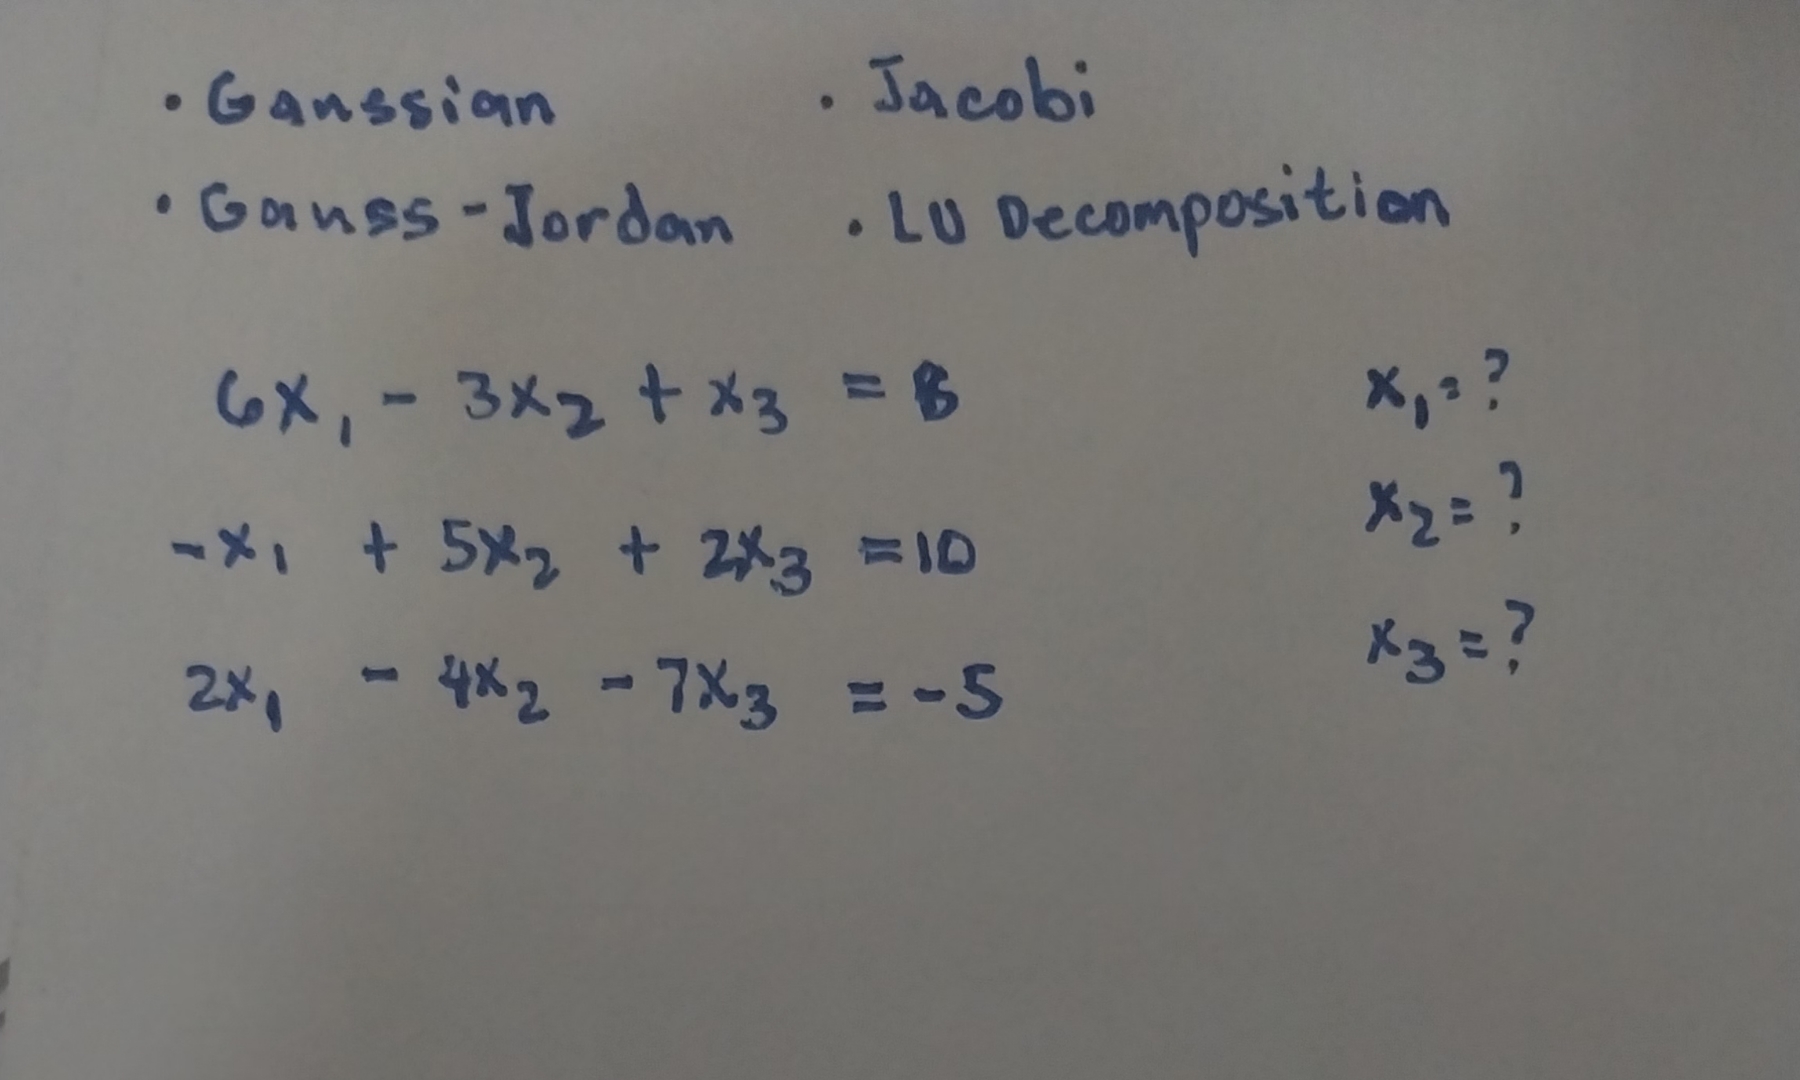 • Gaussian • Jacobi
• Gauss-Jordan • LU Decomposition
6x₁ - 3x₂ + x₃ = 8 x₁ = ?
-x₁ + 5x₂ + 2x₃ = 10 x₂ = ?
2x₁ - 4x₂ - 7x₃ = -5 x₃ = ?